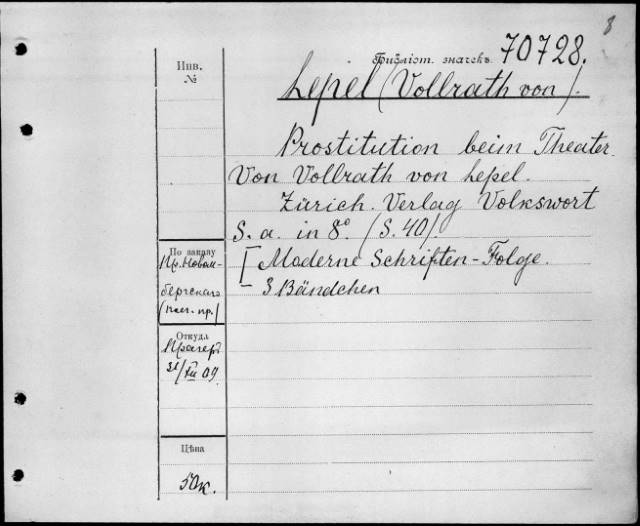 8
Инв.
№
Библіот. значекъ 70728.
Lepel (Vollrath von).
Prostitution beim Theater.
Von Vollrath von Lepel.
Zürich. Verlag Volkswort
S. a. in 8° (S. 40).
[Moderne Schriften-Folge.
3 Bändchen
По заказу
Пр. Новом-
бергскаго
Откуда
Прагеръ
31/XII 09.
Цѣна
50к.